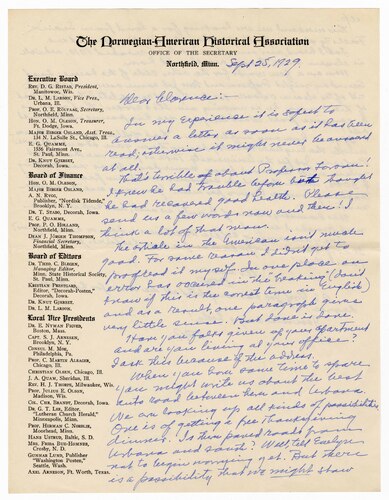 The Norwegian-American Historical Association
OFFICE OF THE SECRETARY
Northfield, Minn.
Sept 25, 1929.
Executive Board
REV. D. G. RISTAD, President,
Manitowoc, Wis.
DR. L. M. LARSON, Vice Pres.,
Urbana, Ill.
PROF. O. E. RÖLVAAG, Secretary,
Northfield, Minn.
HON. O. M. OLESON, Treasurer,
Ft. Dodge, Iowa
MAJOR BIRGER OSLAND, Asst. Treas.,
134 N. LaSalle St., Chicago, Ill.
E. G. QUAMME,
1536 Fairmont Ave.,
St. Paul, Minn.
DR. KNUT GJERSET,
Decorah, Iowa
Board of Finance
HON. O. M. OLESON,
MAJOR BIRGER OSLAND,
A. N. RYGG,
Publisher, "Nordisk Tidende,"
Brooklyn, N. Y.
DR. T. STABO, Decorah, Iowa
E. G. QUAMME,
St. Paul, Minn.
PROF. P. O. HOLLAND,
Northfield, Minn.
DEAN J. JÖRGEN THOMPSON,
Financial Secretary,
Northfield, Minn.
Board of Editors
DR. THEO. C. BLEGEN,
Managing Editor,
Minn. State Historical Society,
St. Paul, Minn.
KRISTIAN PRESTGARD,
Editor, "Decorah-Posten,"
Decorah, Iowa
DR. KNUT GJERSET
DR. L. M. LARSON,
Local Vice Presidents
DR. E. NYMAN FIGNER,
Boston, Mass.
CAPT. S. J. ARNESEN,
Brooklyn, N. Y.
CONSUL M. MOE,
Philadelphia, Pa.
PROF. C. MARIUS ALGAER,
Chicago, Ill.
CHRISTIAN OLSEN, Chicago, Ill.
J. A. QUAM, Sheridan, Ill.
REV. H. J. THORPE, Milwaukee, Wis.
PROF. JULIUS E. OLSON,
Madison, Wis.
COL. CHR. BRANDT, Decorah, Iowa
DR. G. T. LEE, Editor
"Lutheran Church Herald,"
Minneapolis, Minn.
PROF. HERMAN C. NORDLIE,
Moorhead, Minn.
HANS USTRUD, Baltic, S. D.
MRS. FRIDA BUE-HOMNES,
Crosby, N. D.
GUNNAR LUND, Publisher
"Washington Posten,"
Seattle, Wash.
AXEL ARNESON, Ft. Worth, Texas.
Dear Clarence:
In my experience it is safest to
answer a letter as soon as it has been
read; otherwise it might never be answered
at all.
That's terrible about Professor
I knew he had trouble before but thought
he had recovered good health. Please
send us a few words now and then! I
think a lot of that man.
The article in the American isn't much
good. For some reason I didn't get to
proofread it myself. In one place an
error has occured in the "braking" (don't
know if this is the correct term in English)
and as a result, one paragraph gives
very little sense. But done is done.
Have you folks given up your apartment
and are you living at your office?
I ask this because of the address.
When you have some time to spare
you might write us about the best
auto road between here and Urbana.
We are looking up all kinds of possibilities.
One is of getting a free Thanksgiving
dinner. Is there paved roads from
Urbana and south? Well, tell Evelyn
not to begin worrying yet. But there is
a possibility that we might show